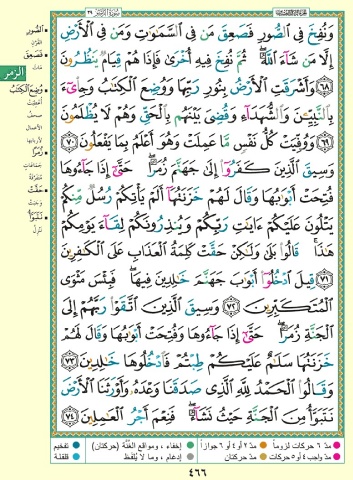 وَنُفِخَ فِى ٱلصُّورِ فَصَعِقَ مَن فِى ٱلسَّمَـٰوَٰتِ وَمَن فِى ٱلْأَرْضِ
إِلَّا مَن شَآءَ ٱللَّهُ ۖ ثُمَّ نُفِخَ فِيهِ أُخْرَىٰ فَإِذَا هُمْ قِيَامٌ يَنظُرُونَ
٦٨ وَأَشْرَقَتِ ٱلْأَرْضُ بِنُورِ رَبِّهَا وَوُضِعَ ٱلْكِتَـٰبُ وَجِا۟ىٓءَ
بِٱلنَّبِيِّـۧنَ وَٱلشُّهَدَآءِ وَقُضِىَ بَيْنَهُم بِٱلْحَقِّ وَهُمْ لَا يُظْلَمُونَ
٦٩ وَوُفِّيَتْ كُلُّ نَفْسٍ مَّا عَمِلَتْ وَهُوَ أَعْلَمُ بِمَا يَفْعَلُونَ ٧٠
وَسِيقَ ٱلَّذِينَ كَفَرُوٓا۟ إِلَىٰ جَهَنَّمَ زُمَرًا ۖ حَتَّىٰٓ إِذَا جَآءُوهَا
فُتِحَتْ أَبْوَٰبُهَا وَقَالَ لَهُمْ خَزَنَتُهَآ أَلَمْ يَأْتِكُمْ رُسُلٌ مِّنكُمْ
يَتْلُونَ عَلَيْكُمْ ءَايَـٰتِ رَبِّكُمْ وَيُنذِرُونَكُمْ لِقَآءَ يَوْمِكُمْ
هَـٰذَا ۚ قَالُوا۟ بَلَىٰ وَلَـٰكِنْ حَقَّتْ كَلِمَةُ ٱلْعَذَابِ عَلَى ٱلْكَـٰفِرِينَ
٧١ قِيلَ ٱدْخُلُوٓا۟ أَبْوَٰبَ جَهَنَّمَ خَـٰلِدِينَ فِيهَا ۖ فَبِئْسَ مَثْوَى
ٱلْمُتَكَبِّرِينَ ٧٢ وَسِيقَ ٱلَّذِينَ ٱتَّقَوْا۟ رَبَّهُمْ إِلَى
ٱلْجَنَّةِ زُمَرًا ۖ حَتَّىٰٓ إِذَا جَآءُوهَا وَفُتِحَتْ أَبْوَٰبُهَا وَقَالَ لَهُمْ
خَزَنَتُهَا سَلَـٰمٌ عَلَيْكُمْ طِبْتُمْ فَٱدْخُلُوهَا خَـٰلِدِينَ ٧٣
وَقَالُوا۟ ٱلْحَمْدُ لِلَّهِ ٱلَّذِى صَدَقَنَا وَعْدَهُۥ وَأَوْرَثَنَا ٱلْأَرْضَ
نَتَبَوَّأُ مِنَ ٱلْجَنَّةِ حَيْثُ نَشَآءُ ۖ فَنِعْمَ أَجْرُ ٱلْعَـٰمِلِينَ ٧٤
الصُّورِ
القرن
فَصَعِقَ
مات
الزمر
وُضِعَ الْكِتَابُ
أعطيت
صحف
الأعمال
لأربابها
زُمَرًا
جماعات
متفرقة
حَقَّتْ
وجبت
نَتَبَوَّأُ
ننزل
مدّ ٦ حركات لزوماً
مدّ ٢ أو ٤ أو ٦ جوازاً
إخفاء، ومواقع الغُنَّة (حركتان)
تفخيم
مدّ واجب ٤ أو ٥ حركات
مدّ حركتان
إدغام، وما لا يُلفظ
قلقلة
٤٦٦